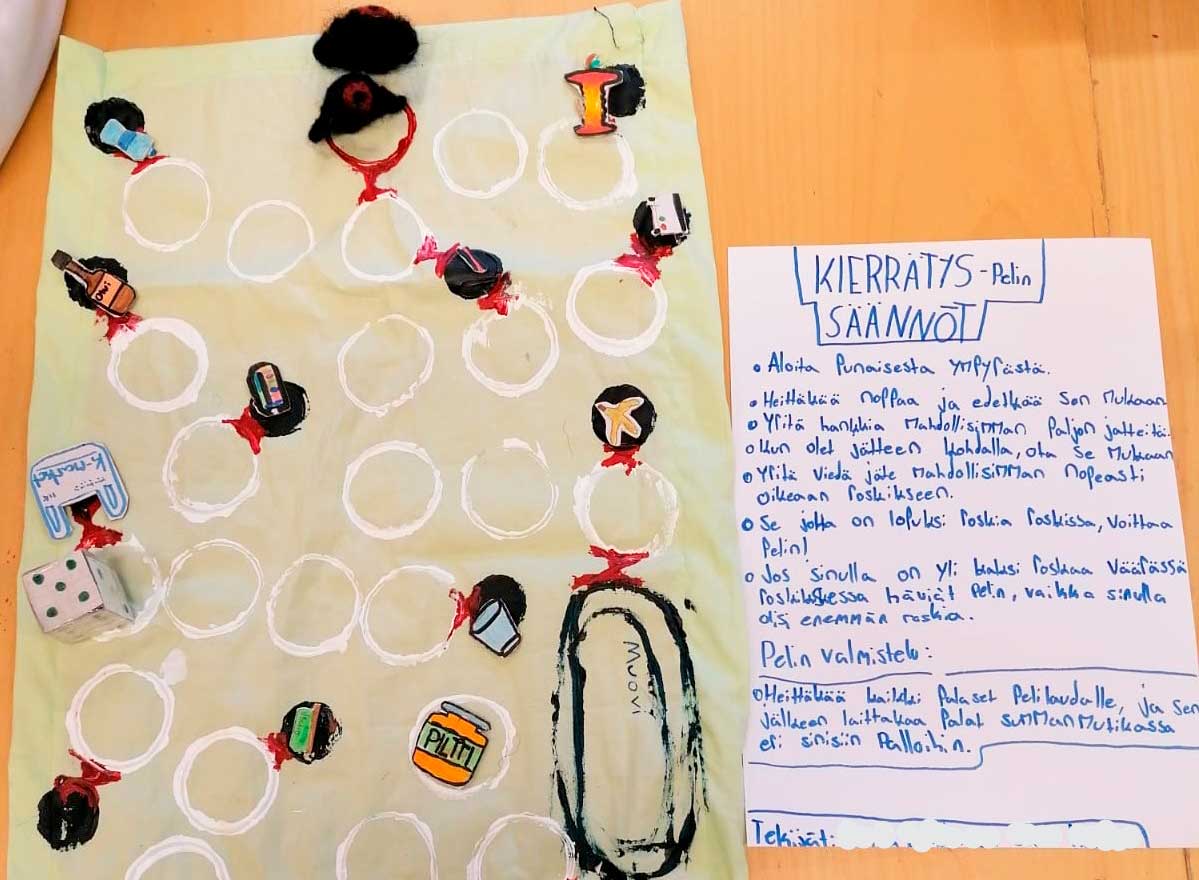 K-market
PILTTI
Muovi
KIERRÄTYS-Pelin
SÄÄNNÖT
• Aloita Punaisesta YMPYrästä.
• Heittäkää noppaa ja edetkää sen mukaan
• Yritä hankkia mahdollisimman paljon jätteitä.
• kun olet jätteen kohdalla, ota se mukaan
• Yritä viedä jäte mahdollisimman nopeasti
oikeaan roskikseen.
• Se jotta on lopuksi roskia roskissa, voittaa
Pelin!
• Jos sinulla on yli kaksi roskaa väärässä
roskiksessa häviät pelin, vaikka sinulla
olisi enemmän roskia.
Pelin valmistelu:
• Heittäkää kaikki palaset pelilaudalle, ja sen
jälkeen laittakaa palat summanmutikassa
eri sinisiin palloihin.
Tekijät: